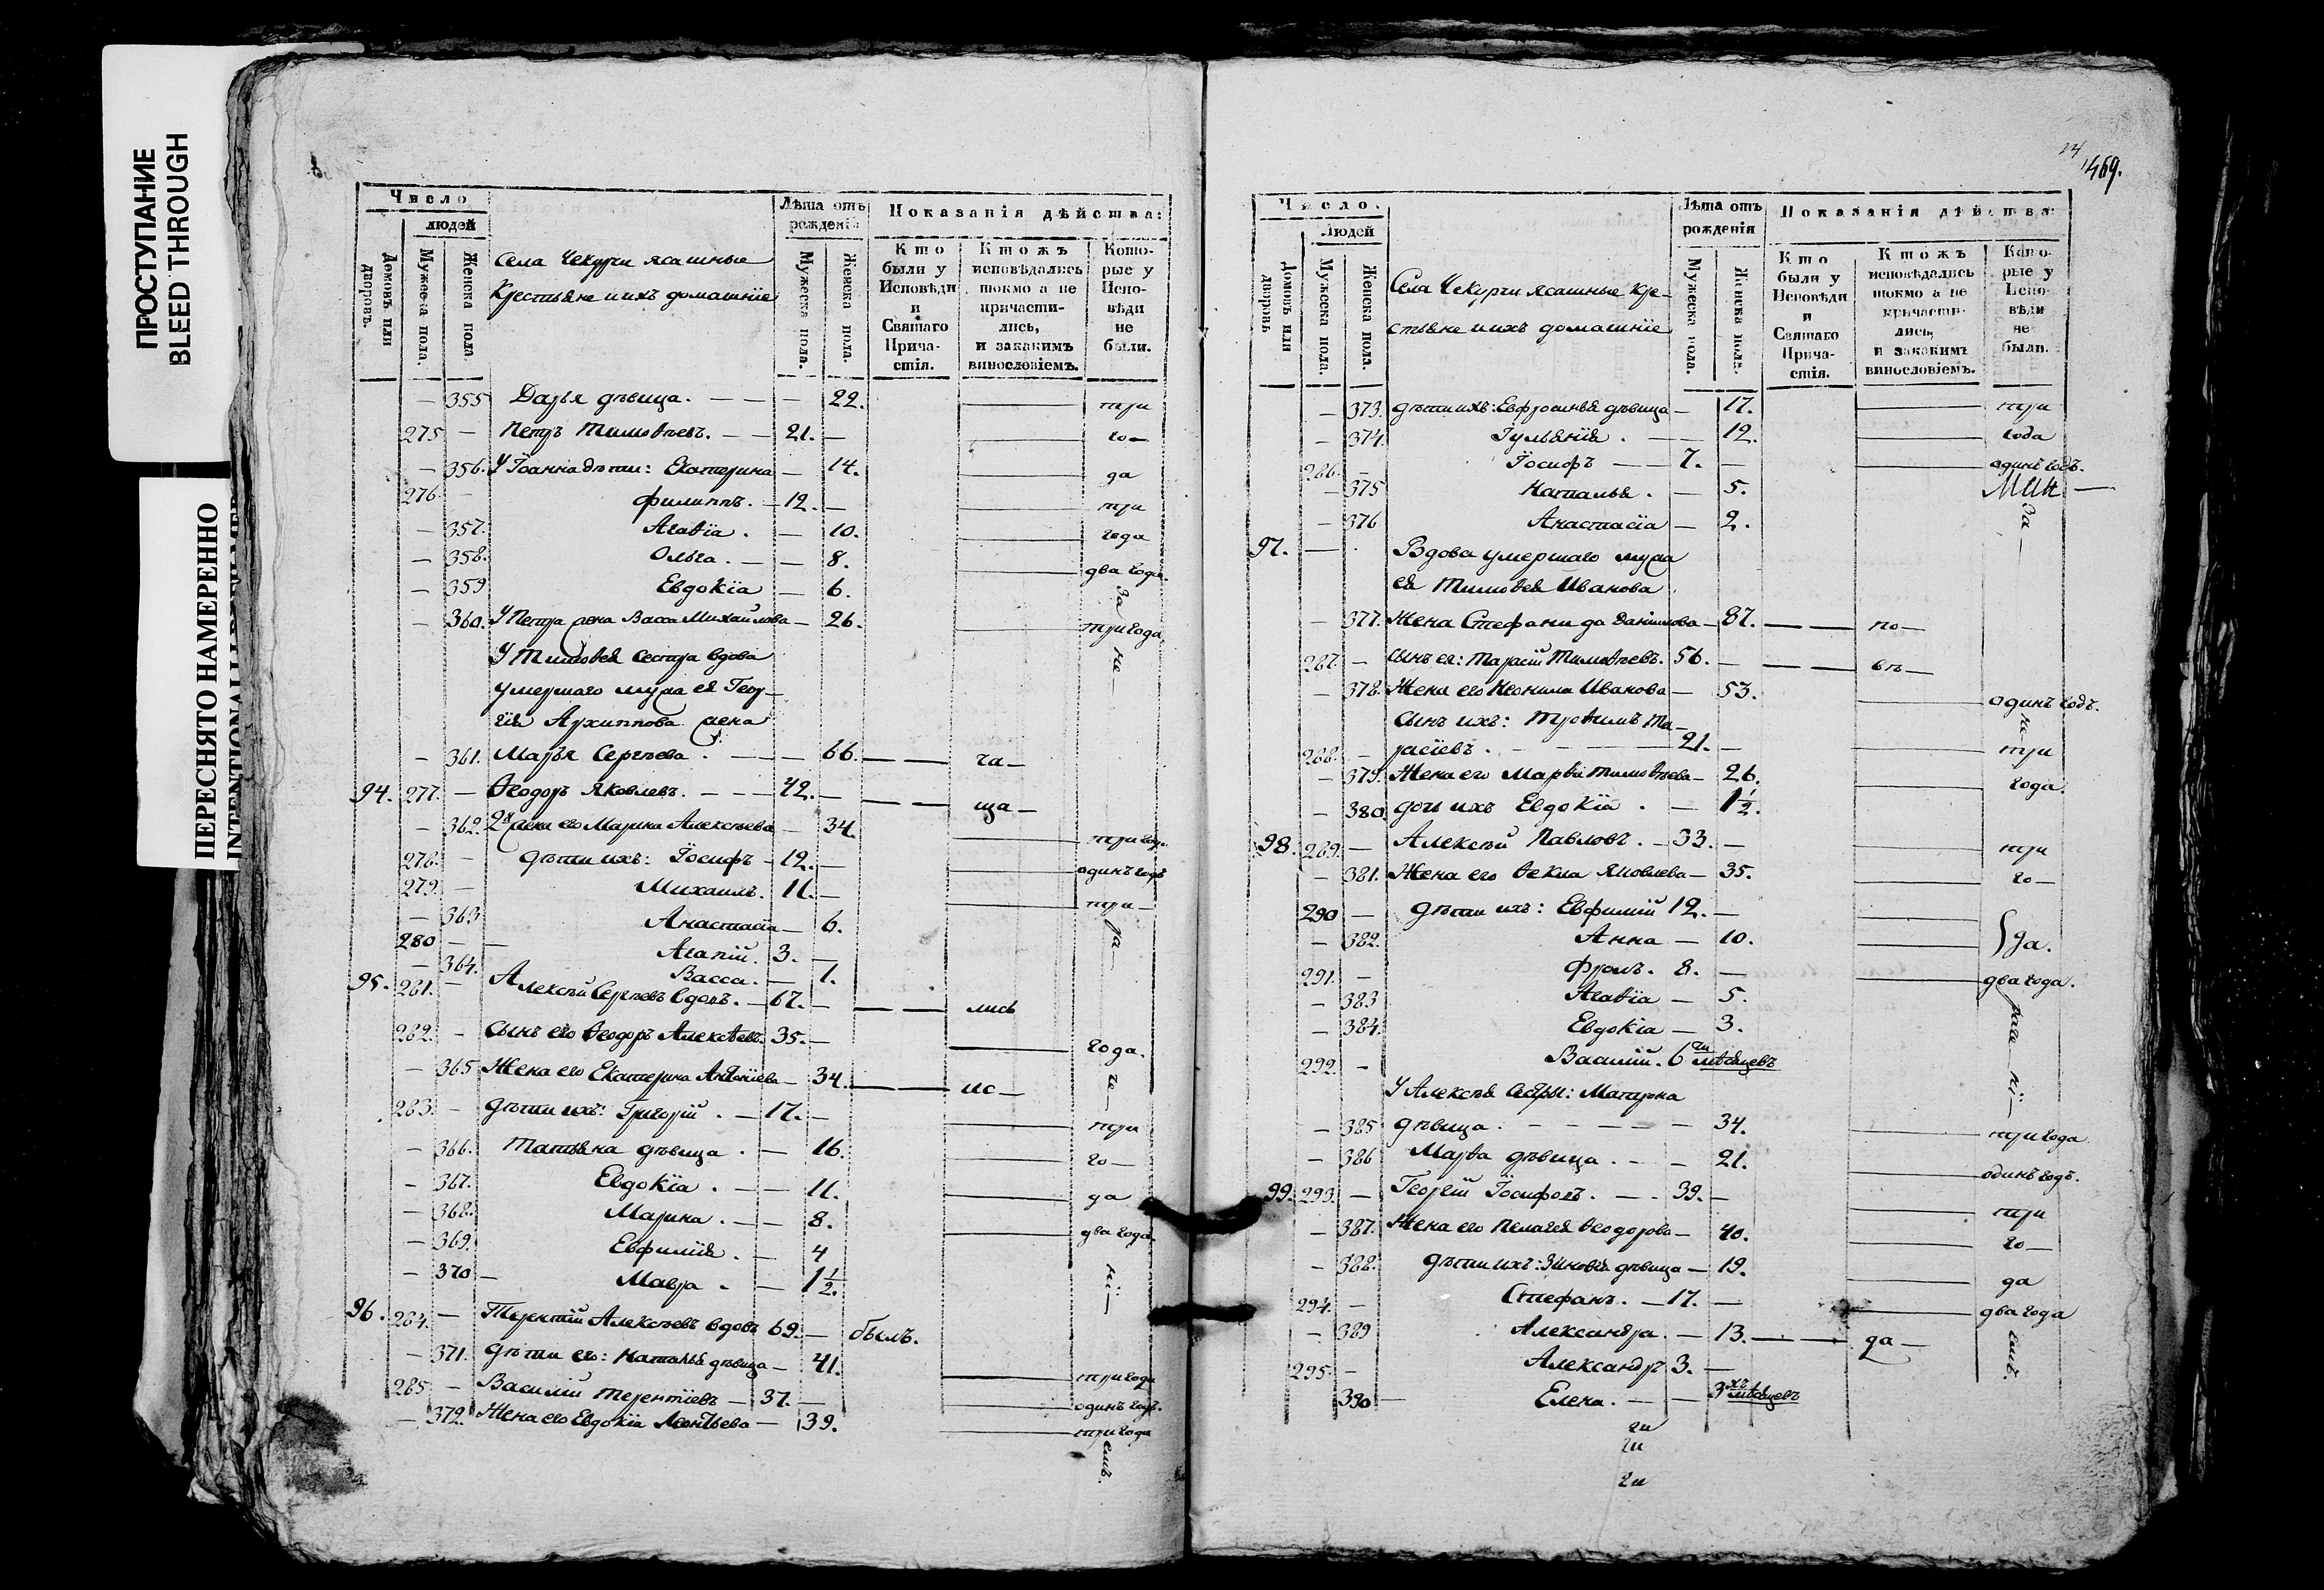 ПРОСТУПАНИЕ
BLEED THROUGH
ПЕРЕСНЯТО НАМЕРЕННО
Число
людей
Домовъ или дворовъ.
Мужеска пола.
Женска пола.
Села Чекурчи ясашные
Крестьяне и ихъ домашнїе
Лѣта отъ рожденія
Мужеска пола.
Женска пола.
Показанія дѣйства:
Кто были у Исповѣди и Святаго Прича-стія.
Ктожъ исповѣдались токмо а не причасти-лись, и закакимъ винословіемъ.
Кото-рые у Испо-вѣди не были.
— 355 Дарья дѣвица. — — — 22. три
275 — Петръ Тимоѳѣевъ. — — 21. — го—
— 356. У Їоанна дѣти: Екатерина — 14. да
276 — Филиппъ. — 12. — три
— 357. Агаѳїа . — 10. года
— 358. Ольга. — — 8. два года.
— 359 Евдокїа — 6. За
— 360. У Петра жена Васса Михайлова — 26. три года.
У Тимоѳея сестра вдова не—
умершаго мужа ея Геор—
гїя Архиппова жена
— 361. Марья Сергѣева . — — — 66. — — ча—
94. 277. — Ѳеодоръ Яковлевъ. — — — 42. — — — ща—
— 362. 2я жена его Марина Алексѣева — 34. три год.
278. — Дѣти ихъ: Їосифъ — 12. — одинъ годъ
279. — Михаилъ. 11. — три—
— 363 Анастасїа — 6.
280 — — Агапїй. 3. —
— 364. Васса. — 1.
95. 281. — Алексѣй Сергѣевъ вдовъ. — 67. — — — лись
282. — Сынъ его Ѳеодоръ Алексѣевъ. 35. — года.
— 365 Жена его Екатерина — 34. — — ис—
283. — Дѣти ихъ: Григорїй . — 17. — три
— 366. Татьяна дѣвица . — 16. го—
— 367. Евдокїа . — — 11. да
— 368. Марина. — — 8. два года.
— 369. Евфимїя . — 4
— 370 — Мавра . — 1 1/2.
96. 284. — Терентїй Алексѣевъ вдовъ 69. — былъ.
— 371. Дѣти его: Наталья дѣвица — 41. три года
285 — Василїй Терентїевъ — 37. — одинъ годъ.
— 372. Жена его Евдокїа Леонтьева — 39. три года
24
469.
Число.
Людей
Домовъ или дворовъ
Мужеска пола.
Женска пола.
Села Чекурчи ясашные Кре-
стьяне и ихъ домашнїе
Лѣта отъ рожденія
Мужеска пола.
Женска пола.
Показанія дѣйства:
Кто были у Исповѣди и Святаго Прича-стія.
Ктожъ исповѣдались токмо а не причасти-лись, и закакимъ винословіемъ.
Кото-рые у Испо-вѣди не были.
— 373. Дѣти ихъ: Евфросинья дѣвица — 17. три
— 374. Їульянїя . — — 12. года
286. — Їосифъ — — 7. — одинъ годъ.
— 375 Наталья . — 5.
— 376 Анастасїа — 2. За—
97. — Вдова умершаго мужа
ея Тимоѳея Иванова
— 377. Жена Стефанида Данїилова — 87. — — по—
287. — Сынъ ея: Тарасїй Тимоѳѣевъ. 56. — — — въ—
— 378. Жена его Неонила Иванова — 53. одинъ годъ.
Сынъ ихъ: Трофимъ Та—
288. — расїевъ . — — — 21. — три
— 379. Жена его Марѳа Тимоѳѣева — 26. года.
— 380. Дочь ихъ Евдокїа . — 1 1/2.
98. 289. — Алексѣй Павловъ . — 33. — три
— 381. Жена его Ѳекла Яковлева — 35. го—
290 — Дѣти ихъ: Евфимїй 12. —
— 382. Анна — 10. да.
291. — Фролъ. 8. — два года.
— 383 Агаѳїа — 5.
— 384. Евдокїа — 3.
292. — Василїй. 6ти мѣсяцевъ
У Алексѣя сестры: Матрона
— 385 дѣвица . — — — — 34. три года
— 386 Марѳа дѣвица . — — 21. одинъ годъ.
99. 293. — Георгїй Їосифовъ . — — 39. — три
— 387. Жена его Пелагея Ѳеодорова — 40. го—
— 388. Дѣти ихъ: Зиновїя дѣвица — 19. да
294. — Стефанъ. — 17. — два года
— 389 Александра. — 13. — — да—
295. — Александръ 3. —
390 — Елена. — — 3хъ мѣсяцевъ